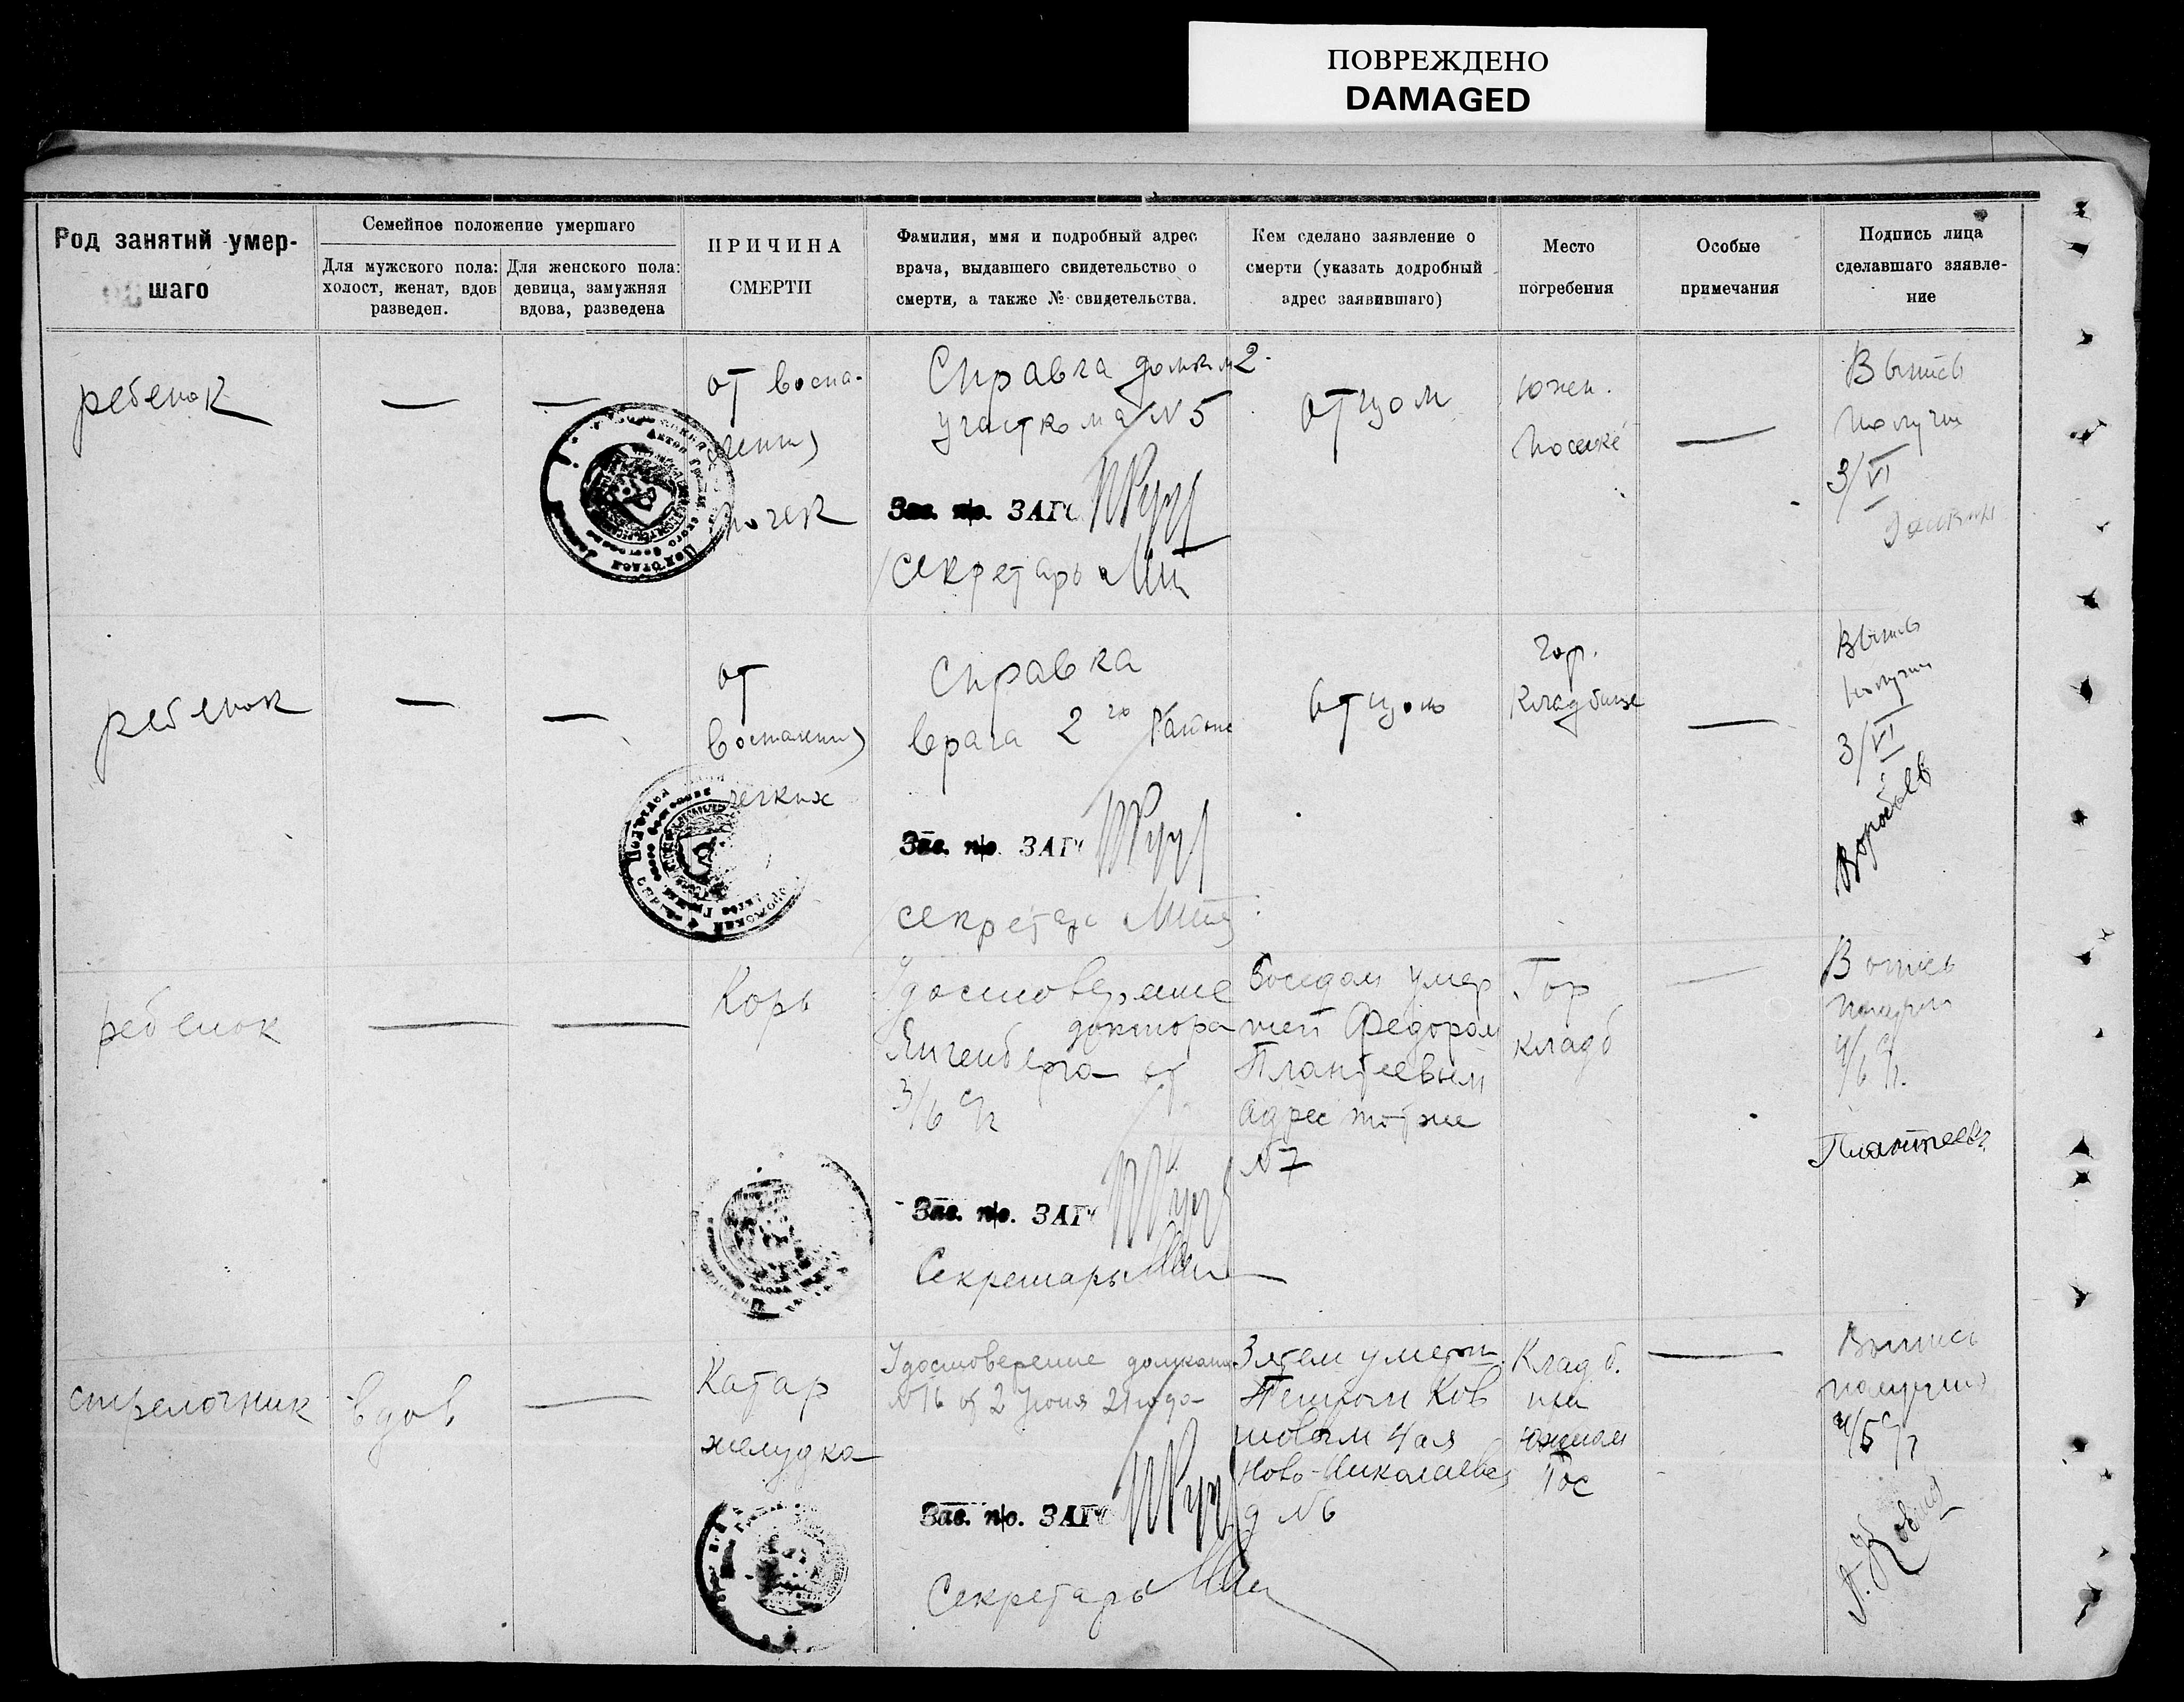 ПОВРЕЖДЕНО
DAMAGED
Род занятий умер-
шаго
Семейное положение умершаго
Для мужского пола:
холост, женат, вдов
разведен.
Для женского пола:
девица, замужняя
вдова, разведена
ПРИЧИНА
СМЕРТИ
Фамилия, имя и подробный адрес
врача, выдавшего свидетельство о
смерти, а также № свидетельства.
Кем сделано заявление о
смерти (указать додробный
адрес заявившаго)
Место
погребения
Особые
примечания
Подпись лица
сделавшаго зяявле-
ние
ребенок
—
—
от воспа-
ления
почек
Справка
участкома №5
Зав. п/о. ЗАГС
Секретарь
отцом
Южн.
поселке
—
Выпись
получил
3/VI
ребенок
—
—
от
воспаления
легких
Справка
врача 2го Района
Зав. п/о. ЗАГС
Секретарь
отцом
Гор.
Кладбище
—
Выпись
получил
3/VI
Воробьев
ребенок
—
—
Корь
Удостоверение
доктора
от
3/6 с/г
Зав. п/о. ЗАГС
Секретарь
Соседом умер
шей Федором
Плантеевым
адрес тот же
№7
Гор
кладб
—
Выпись
получил
4/6 с/г.
Плантеевъ
стрелочник
вдов
—
Катар
желудка
Удостоверение домкома
№16 от 2 Июня 21 года
Зав. п/о. ЗАГС
Секретарь
Зятем умерш.
Петром Ков
шовым 4ая
Ново-Николаевск
д №6
Кладб.
при
южном
Пос
—
Выпись
получил
4/6 с/г